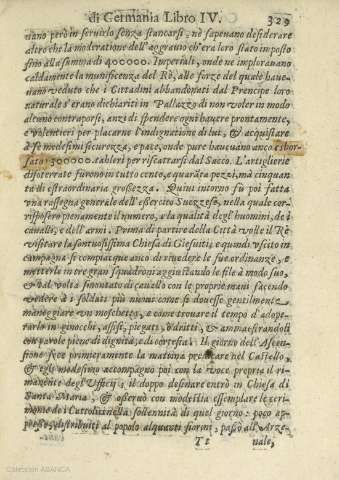 di Germania Libro IV. 329
uano però in seruirlo senza stancarsi, nè sapeuano desiderare
altro che la moderatione dell'aggrauio ch'era loro stato imposto
sino alla summa di 400000. Imperiali, onde ne implorauano
caldamente la munificenza del Rè, alle forze del quale haue-
uano veduto che i Cittadini abbandonati dal Prencipe loro
naturale s'erano dichiariti in Pallazzo di non voler in modo
alcuno contraporsi, anzi di spendere ogni hauere prontamente,
e volentieri per placarne l'indignatione di lui, & acquistare
à se medesimi sicurezza, e pace, onde pure haueuano anco esbor-
sato 300000. talleri per riscattarsi dal Sacco. L'artiglierie
disoterrate furono in tutto cento, e quaràta pezzi, mà cinquan-
ta di estraordinaria grossezza. Quini intorno fù poi fatta
vna rassegna generale dell'essercito Suezzese, nella quale cor-
rispossero pienamente il numero, e la qualità degl'huomini, de i
caualli, e dell'armi. Prima di partire della Città volle il Rè
visitare la sontuosissima Chiesa di Giesuiti, e quindi vscito in
campagna si compiacque anco di riuedere le sue ordinanze, e
metterle in tre gran squadroni aggiustando le file à modo suo,
& tal volta smontato di cauallo con le proprie mani facendo
vedere à i soldati più nuoui come si douesse gentilmente
maneggiare vn moschetto, e come trouare il tempo d'adope-
rarlo in ginocchi, assisi, piegati, & dritti, & ammaestrandoli
con parole piene di dignità, e di cortesia. Il giorno dell'Ascen-
sione fece primieramente la mattina predicare nel Castello,
& egli medesimo accompagnò poi con la voce propria il ri-
manente degl'Vfficij; il doppo desinare entrò in Chiesa di
Santa Maria, & osseruò con modestia essemplare le ceri-
monie de i Cattolici nella sollennità di quel giorno: poco ap-
presso, distribuiti al popolo alquanti fiorini, passò all'Arze-
Tt nale,
Colección ABANCA